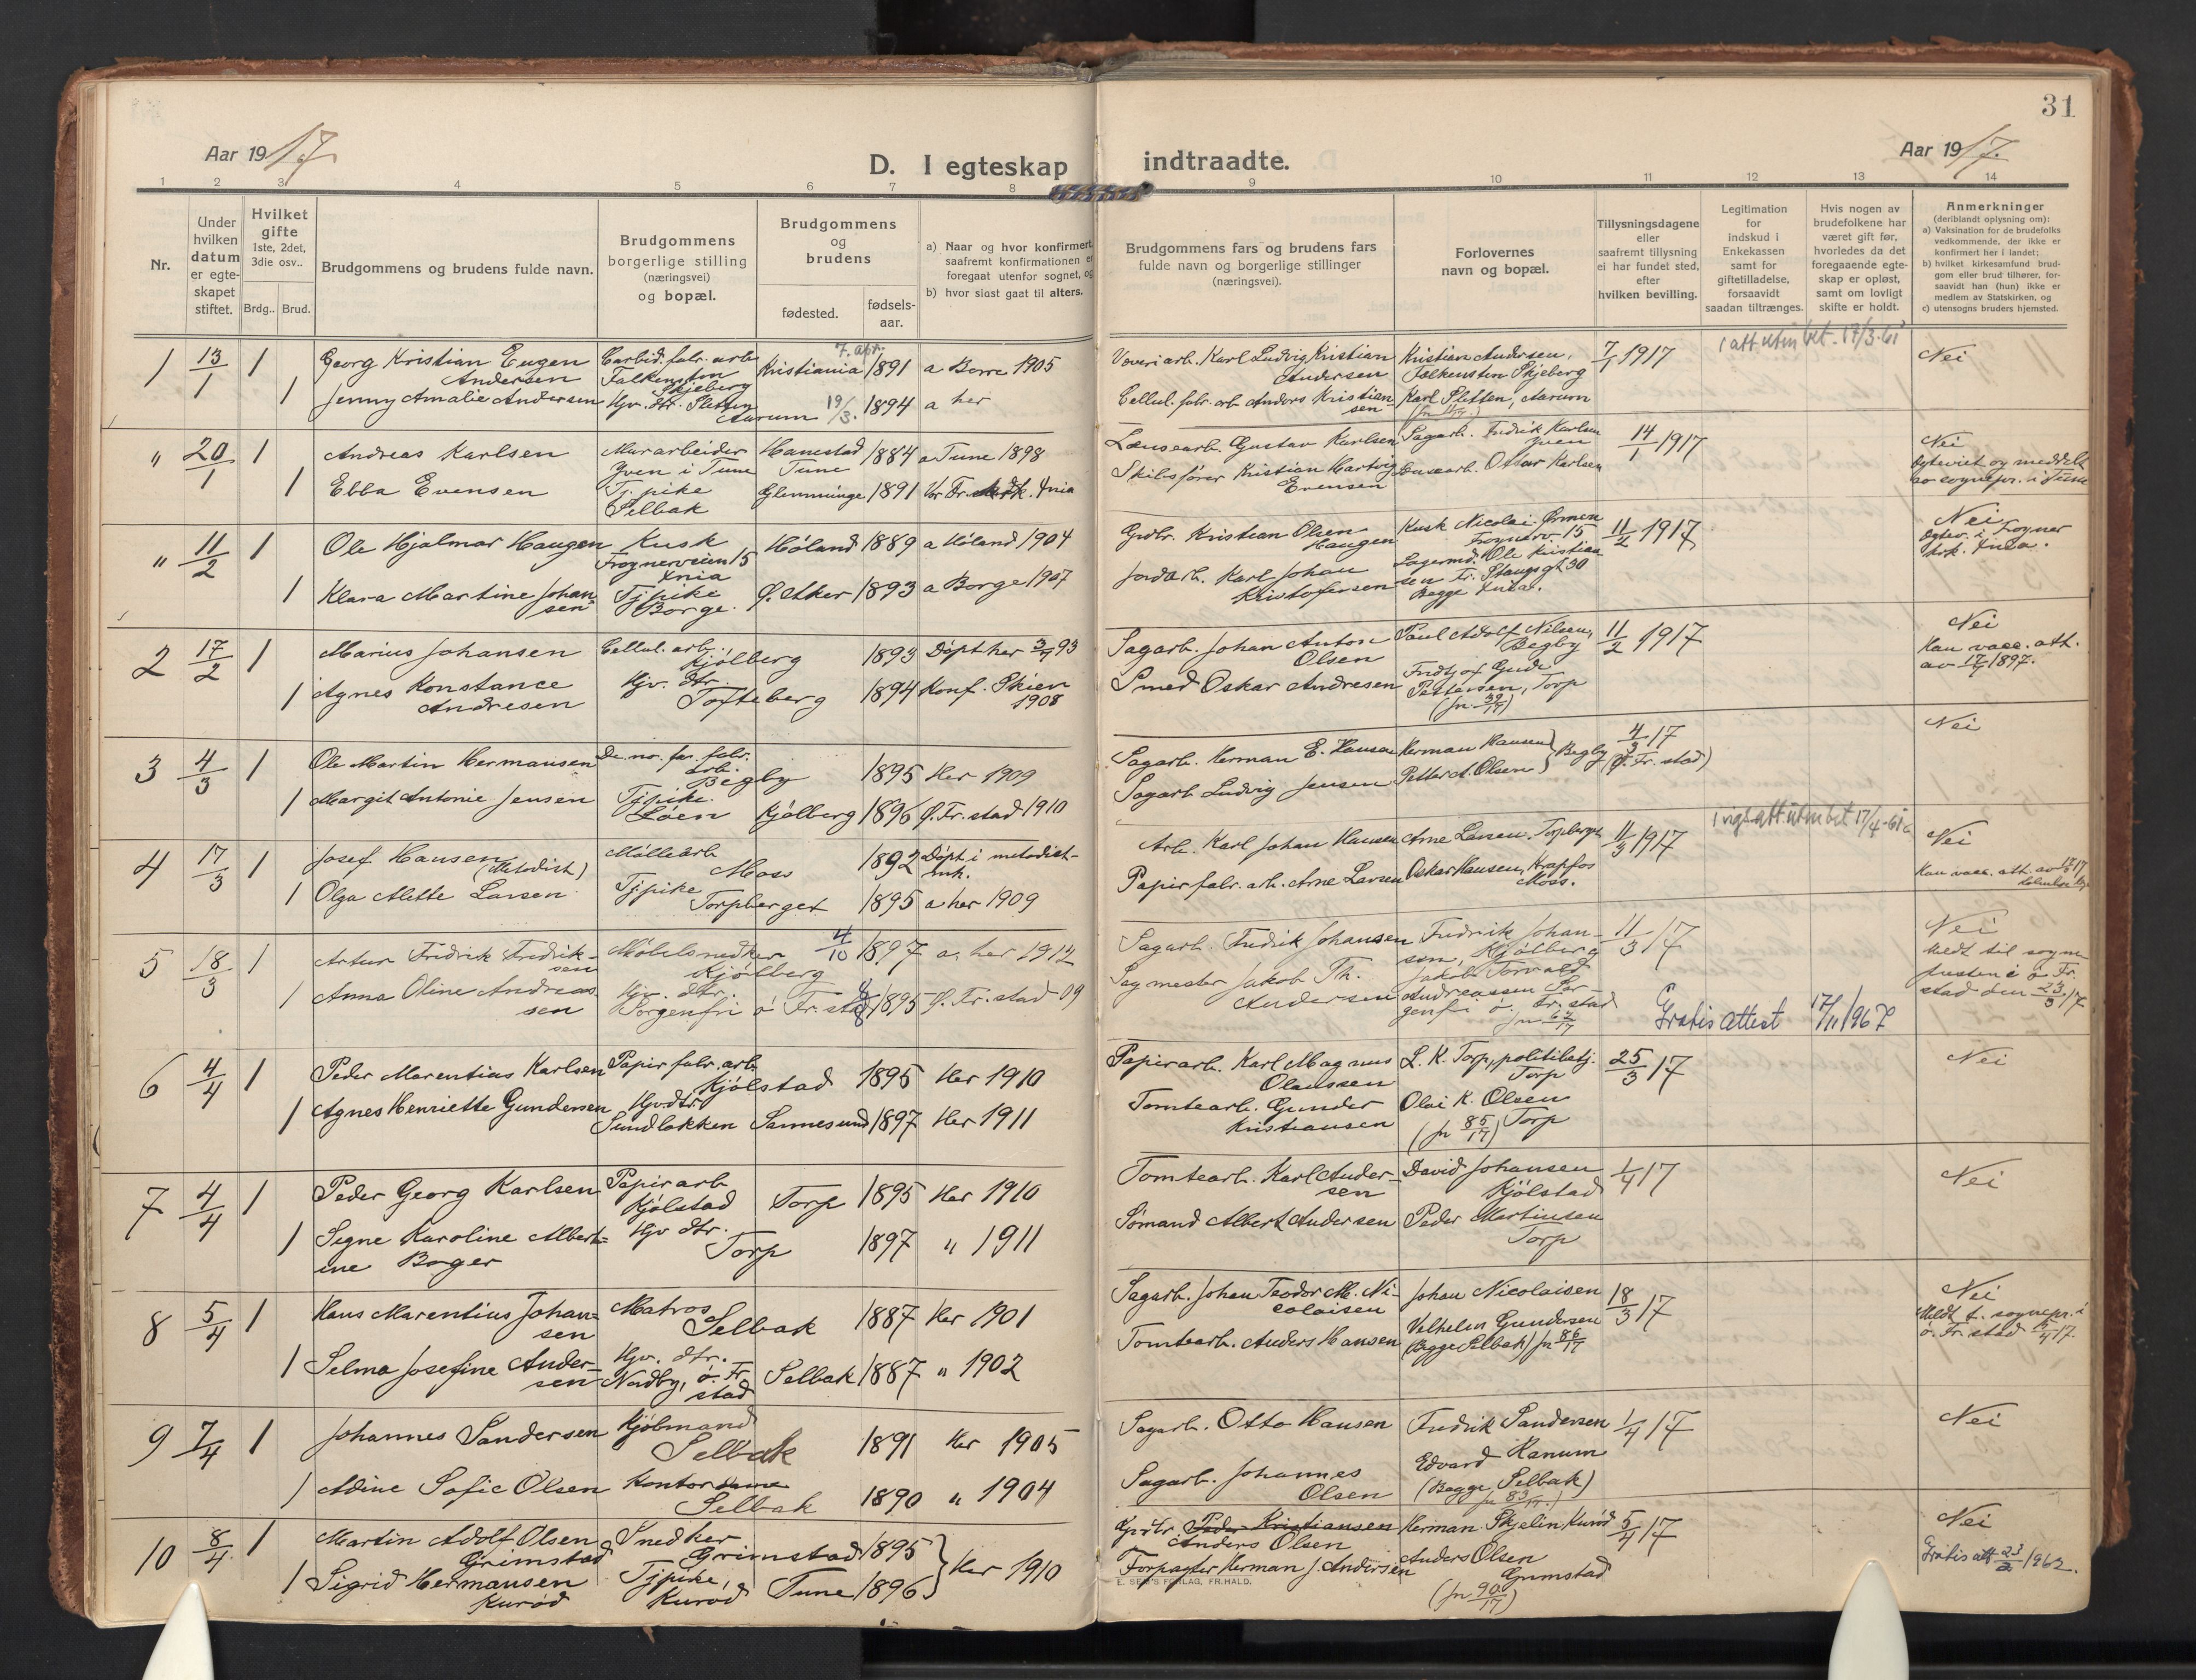 31
Aar 1917
D. I egteskap indtraadte.
Aar 1917.
1 2 3 4 5 6 7 8 9 10 11 12 13 14
Nr.
Under hvilken datum er egteskapet stiftet.
Hvilket gifte
1ste, 2det, 3die osv..
Brdg.. Brud.
Brudgommens og brudens fulde navn.
Brudgommens borgerlige stilling (næringsvei) og bopæl.
Brudgommens og brudens
fødested.
fødsels-aar.
a) Naar og hvor konfirmert, saafremt konfirmationen er foregaat utenfor sognet, og
b) hvor sidst gaat til alters.
Brudgommens fars og brudens fars fulde navn og borgerlige stillinger (næringsvei).
Forlovernes navn og bopæl.
Tillysningsdagene eller saafremt tillysning ei har fundet sted, efter hvilken bevilling.
Legitimation for indskud i Enkekassen samt for giftetilladelse, forsaavidt saadan tiltrænges.
Hvis nogen av brudefolkene har været gift før, hvorledes da det foregaaende egteskap er opløst, samt om lovligt skifte er holdt.
Anmerkninger
(deriblandt oplysning om):
a) Vaksination for de brudefolks vedkommende, der ikke er konfirmert her i landet;
b) hvilket kirkesamfund brudgom eller brud tilhører, forsaavidt han (hun) ikke er medlem av Statskirken, og
c) utensogns bruders hjemsted.
1 13/1 1 Georg Kristian Eugen Andersen Carbid. fabr. arb. Falkensten Skjeberg Kristiania 7. apr. 1891 a Borre 1905
1 Jenny Amalie Andersen Hjv. dtr. Sletten Aarum 19/3. 1894 a her
Væveriarb. Karl Ludvig Kristian Andersen Kristian Andersen, Falkensten Skjeberg 7/1 1917 1 att utm bet. 17/3-61 Nei
Cellul. fabr. arb. Anders Kristiansen Karl Sletten, Aarum
" 20/1 1 Andreas Karlsen Murarbeider Yven i Tune Hanestad Tune 1884 a Tune 1898
1 Ebba Evensen Tj.pike Selbak Glemminge 1891 Vor Fr. Xnia
Lænsearb. Gustav Karlsen Sagarb. Fredrik Karlsen Yven 14/1 1917 Nei
Skibsfører Kristian Hartvig Evensen Lænsearb. Ottar Karlsen
" 11/2 1 Ole Hjalmar Haugen Kusk Frognerveien 15 Xnia Høland 1889 a Høland 1904
1 Klara Martine Johansen Tjpike Borge. Ø. Aker 1893 a Borge 1907
Grdbr. Kristian Olsen Haugen Kusk Nicolai Ørmen Frognerv. 15 11/2 1917 Nei
Jordarb. Karl Johan Kristofersen Lagermd. Ole Kristiansen Fr. Stangs gt 30 Begge Xnia.
2 17/2 1 Marius Johansen Cellul. arb. Kjølberg 1893 Døpt her 3/4 93
1 Agnes Konstance Andresen Hjv. dtr. Tofteberg 1894 Konf. Skien 1908
Sagarb. Johan Anton Olsen Paul Adolf Nilsen, Begby 11/2 1917 Nei
Smed Oskar Andresen Fridtjof Gude Pettersen, Torp Hau vacc. att. av 17/7 1897.
3 4/3 1 Ole Martin Hermansen De. no. fa. fabr. arb. Begby 1895 Her 1909
1 Margit Antonie Jensen Tjpike. Løen Kjølberg 1896 Ø. Fr. stad 1910
Sagarb. Herman E. Hansen Herman Hansen Begby 4/3 17 (Ø. Fr. stad) Nei
Sagarb. Ludvig Jensen Petter A. Olsen
4 17/3 1 Josef Hansen (Metodist) Møllearb Moss 1892 Døpt i metodist-mh.
1 Olga Alette Larsen Tjpike Torpberget 1895 a her 1909
Arb. Karl Johan Hansen Arne Larsen. Torpberget 11/3 1917 1 vigs. att utm bet 17/4-61 Nei
Papirfabr. arb. Arne Larsen Oskar Hansen, Krapfos Moss.
5 18/3 1 Artur Fredrik Fredriksen Møbelsnedker Kjølberg 4/10 1897 a. her 1912
1 Anna Oline Andreassen Hjv. dtr. Sorgenfri ø Fr. stad 1895 Ø. Fr. stad 09
Sagarb. Fredrik Johansen Fredrik Johansen, Kjølberg 11/3 17 Nei
Sagmester Jakob Th. Andersen Jakob Torvald Andreassen Sorgenfri ø. Fr. stad Meldt til sognepresten i ø. Fr. stad den 23/3 17
Gratis attest 17/11 1967
6 4/4 1 Peder Marentius Karlsen Papirfabr. arb Kjølstad 1895 Her 1910
1 Agnes Henriette Gundersen Hjvdtr Sundløkken Sannesund 1897 Her 1911
Papirarb. Karl Magnus Olaussen L. K. Torp, politibetj. Torp 25/3 17 Nei
Tomtearb. Gunder Kristiansen Olai K. Olsen Torp (jn 85/17)
7 4/4 1 Peder Georg Karlsen Papirarb Kjølstad Torp 1895 Her 1910
1 Signe Karoline Albertine Boger Hjv dtr. Torp 1897 " 1911
Tomtearb. Karl Andersen David Johansen Kjølstad 1/4 17 Nei
Sømand Albert Andersen Peder Martinsen Torp
8 5/4 1 Hans Marentius Johansen Matros Selbak 1887 Her 1901
1 Selma Josefine Andersen Hjv. dtr. Nordby, ø. Fr. stad Selbak 1887 " 1902
Sagarb. Johan Teodor M. Nicolaisen Johan Nicolaisen 18/3 17 Nei
Tomtearb. Anders Hansen Vilhelm Gundersen (Begge Selbak) jn 86/17 Meldt t. sognepr. i ø. Fr. stad 15/4 17.
9 7/4 1 Johannes Sandersen Kjøbmand Selbak 1891 Her 1905
1 Adine Sofie Olsen Kontordame Selbak 1890 " 1904
Sagarb. Otto Hansen Fredrik Sandersen 1/4 17 Nei
Sagarb. Johannes Olsen Edvard Ranum (Begge, Selbak)
10 8/4 1 Martin Adolf Olsen Grimstad Snedker Grimstad 1895 Her 1910
1 Sigrid Hermansen Kurød Tjpike, Kurød Tune 1896
Grdbr. Peder Kristiansen Anders Olsen Herman Skjelin Kurød 5/4 17 Nei
Forpagter Herman J. Andersen Anders Olsen Grimstad (jn 90/17) Gratis att 1962.
E. SEM'S FORLAG, FR.HALD.